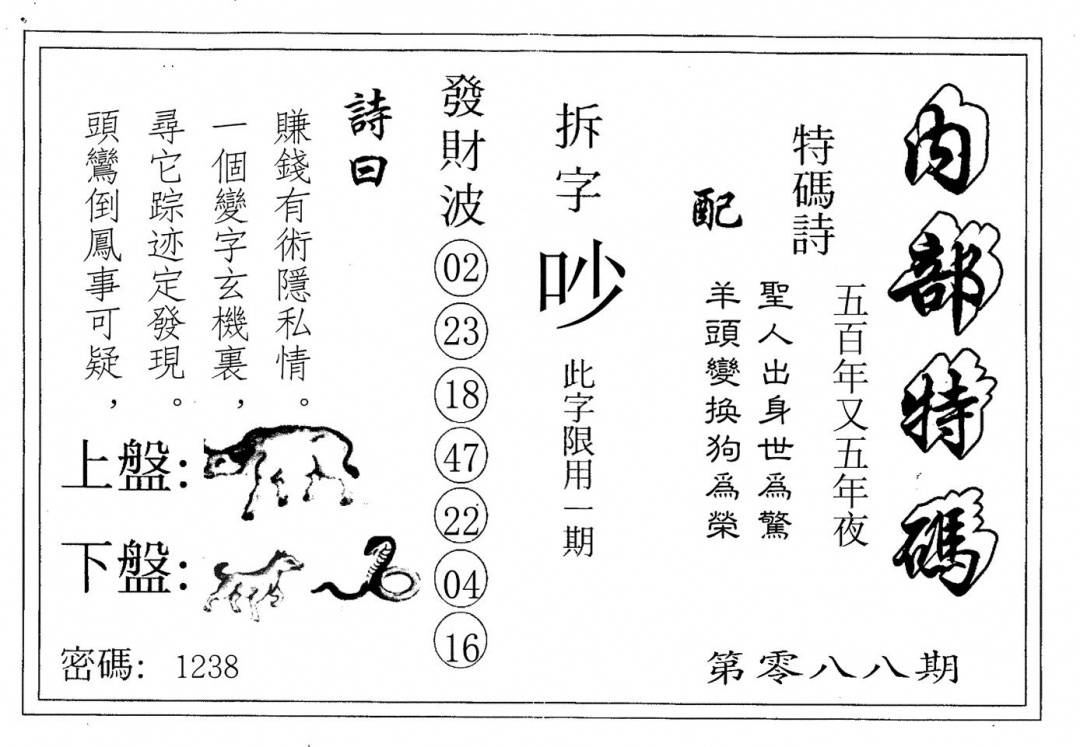 內部特碼
第零八八期
特碼詩
五百年又五年夜
配
聖人出身世爲驚
羊頭變换狗爲榮
拆字
吵
此字限用一期
發財波
02
23
18
47
22
04
16
詩曰
賺錢有術隱私情。
一個變字玄機裏，
尋它踪迹定發現。
頭鸞倒鳳事可疑，
上盤:
下盤:
密碼: 1238